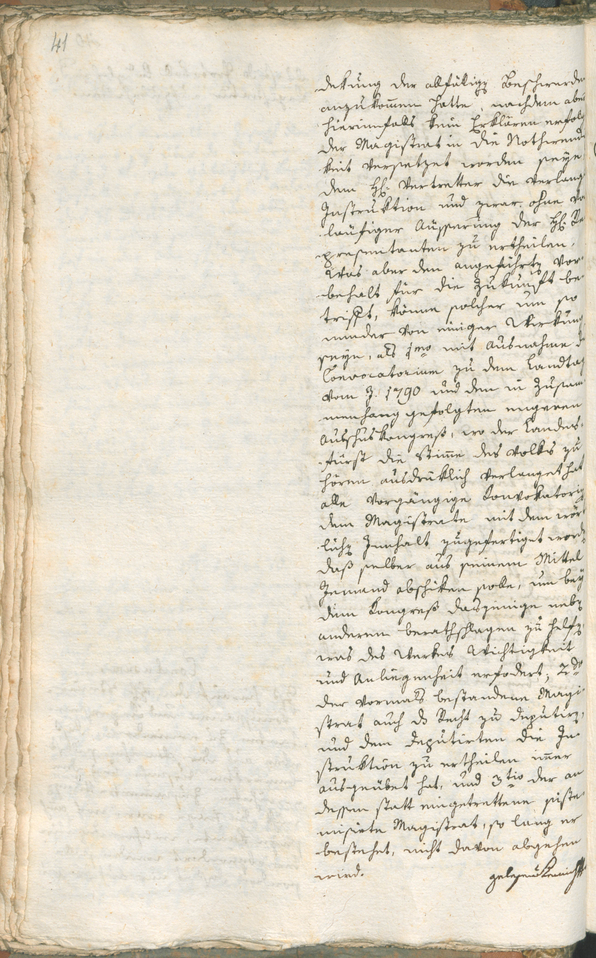 41
dekung der allfälligen Beschwerden
anzukom̅en hatte, nachdem aber
hierinnfalls kein Erklären erfolgt
der Magistrat in die Nothwendig
keit versetzet worden seye
dem H. Vertretter die verlangte
Instruktion und zwar ohne vor
läufiger Äusserung der H. Re
präsentanten zu ertheilen.
Was aber den angeführten Vor
behalt für die Zukunft be
trifft, könne solcher um so
minder von einiger Wirkung
seye, als 1mo mit Ausnahme
Convocatorium zu dem Landtag
vom J. 1790 und den in Zusam
menhang gefolgten engeren
Ausschuskongress, wo der Landes
fürst die Stim̅e des Volks zu
hören ausdrüklich verlanget hat
alle vorgängige Convokatorien
dem Magistrate mit dem wört
lichen Innhalt zugefertiget worden
daß selber aus seinem Mittel
Jemand abschiken solle, um bey
dem Kongreß dasjenige nebst
anderen berathschlagen zu helfen
was des Werkes Wichtigkeit
und Anliegenheit erfodert, 2do
der vormals bestandene Magi
strat auch das Recht zu deputiren,
und dem Deputirten die In
struktion zu ertheilen im̅er
ausgeübet hat, und 3tio der an
dessen statt eingetrettene syste
misirte Magistrat, so lang er
bestehet, nicht davon abgehen
wird.